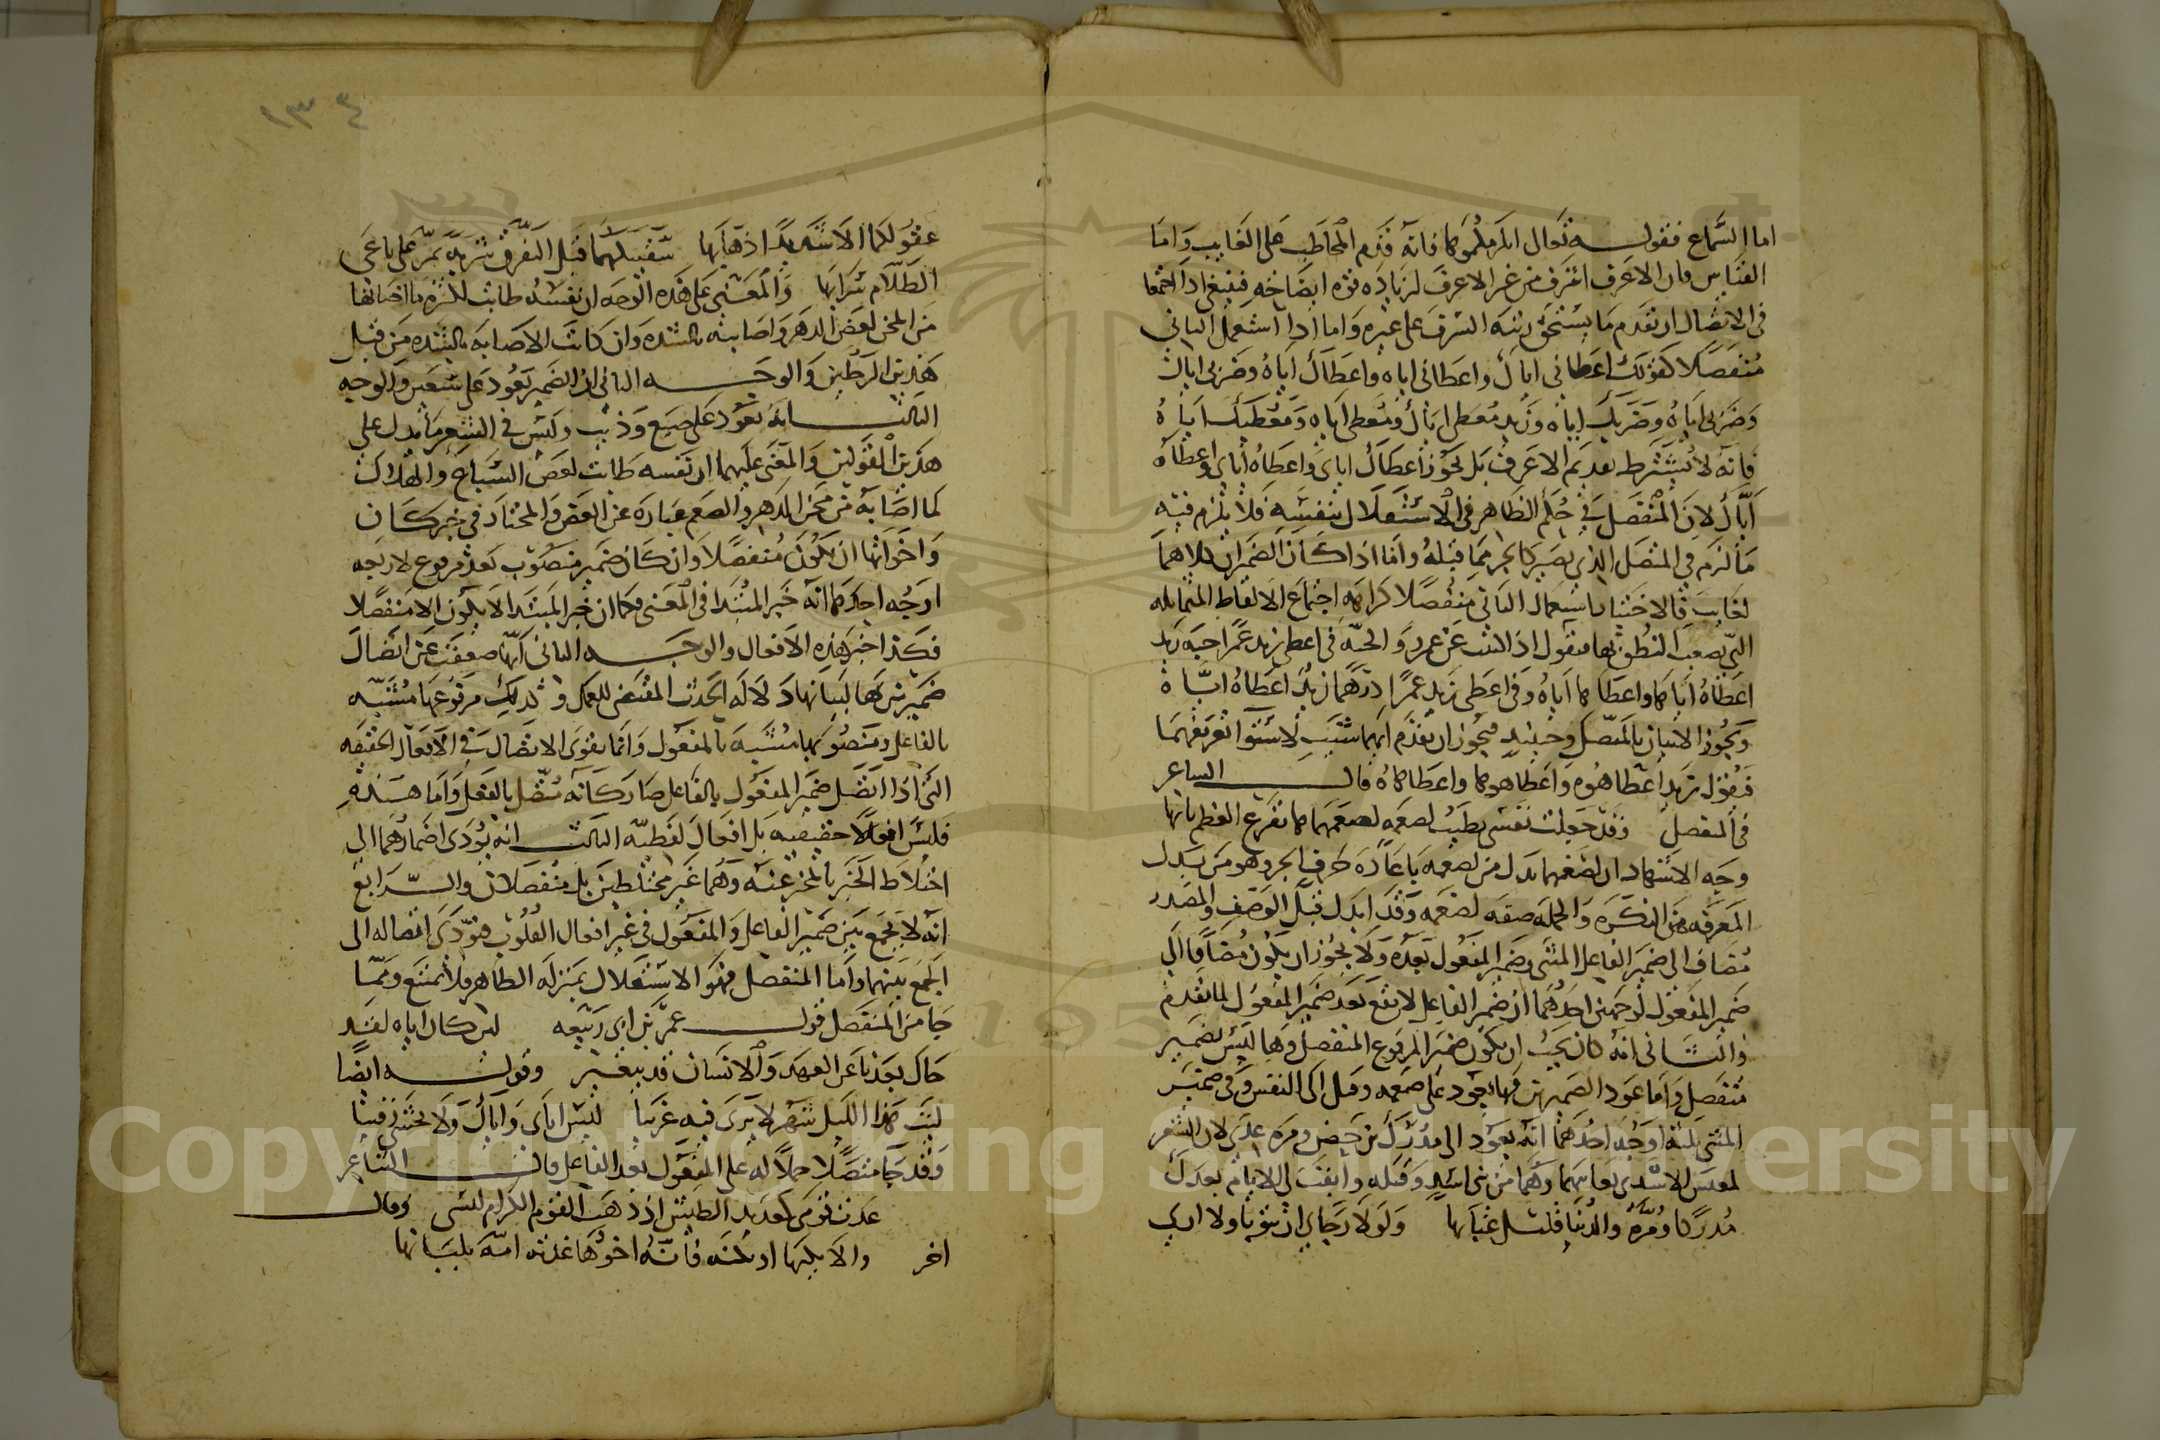 اما السماع فقوله تعالى انلزمكموها فانه قدم المخاطب على الغايب واما
القياس فان الاعرف اشرف من غير الاعرف لزيادة قوة ايضاحه فينبغي اذا اجتمعا
في الاتصال ان تقدم ما يستحق رتبة الشرف على غيره واما اذا استعمل الثاني
منفصلا كقولك اعطاني اياك واعطاني اياه واعطاك اياه وضربي اياك
وضربي اياه وضربك اياه وزيد معطي اياك ومعطي اياه ومعطيك اياه
فانه لا يشترط تقديم الاعرف بل يجوز اعطاك اياي واعطاه اياي واعطاه
اياك لان المنفصل في حكم الظاهر في الاستقلال بنفسه فلا يلزم فيه
ما لزم في المتصل الذي يصير كالجز مما قبله واما اذا كان الضميران كلاهما
لغايب فالاختيار استعمال الثاني منفصلا كراهة اجتماع الالفاظ المتماثله
التي يصعب النطق بها فتقول اذا الثبت عن عمرو والجبة في اعطى زيد عمرا جبة زيد
اعطاه اياها واعطاها اياه وفي اعطى زيد عمرا درهما زيد اعطاه اياه
ويجوز الاتيان بالمتصل وحينيذ فيجوز ان تقدم ايهما شئت لاستوا تعريفهما
فتقول زيد اعطاهوه واعطاهوها واعطاهاه قال الشاعر
في المتصل وقد جعلت نفسي تطيب لضغمة لضغمهماها يقرع العظم نابها
وجه الاستشهاد ان لضغمهما بدل من لضغمة باعادة حرف الجر وهو من بدل
المعرفة من النكرة والجملة صفة لضغمة وقد ابدل قبل الوصف والمصدر
مضاف الى ضمير الفاعل المثنى وضمير المفعول بعده ولا يجوز ان يكون مضافا الى
ضمير المفعول لوجهين احدهما ان ضمير الفاعل لا يقع بعد ضمير المفعول لما تقدم
والثاني انه كان يجب ان يكون ضمير المرفوع المنفصل وها ليس بضمير
منفصل واما عود الضميرين فها يعود على ضغمة وقيل الى النفس وفي ضمير
المثنى ثلثة اوجه احدهما انه يعود الى مدرك بن حصن ومرة بن عدي لان الشعر
لمغلس الاسدي يعاتبهما وهما من بني اسد وقبله وابقت لي الايام بعدك
مدركا ومرة والدنيا قليل عتابها ولولا رجاي ان يثوبا ولا ارى
عقولكما الا شديدا ذهابها سقيتكما قبل التفرق شربة يمر على باغي
الظلام شرابها والمعنى على هذه الوجه ان نفسه طابت لكثرة ما اصابها
من المحن لعض الدهر واصابته بالشدة وان كانت الاصابة بالشدة من قبل
هذين الرجلين والوجه الثاني ان الضمير يعود على سبعين والوجه
الثالث انه يعود على ضبع وذئب وليس في الشعر ما يدل على
هذين القولين والمعنى عليهما ان نفسه طابت لعض السباع والهلاك
لما اصابه من محن الدهر والضغم عبارة عن العض والمختار في خبر كان
واخواتها ان يكون منفصلا وان كان ضمير منصوب بعد مرفوع لاربعة
اوجه احدها انه خبر المبتدا في المعنى فكما ان خبر المبتدا لا يكون الا منفصلا
فكذا خبر هذه الافعال والوجه الثاني انها ضعفت عن اتصال
ضميرين بها لسانها دلالة الحدث المقتضي للعمل وكذلك مرفوعها مشبه
بالفاعل ومنصوبها مشبه بالمفعول وانما يقوى الاتصال في الافعال الحقيقه
التي اذا اتصل ضمير المفعول بالفاعل صار كانه متصل بالفعل واما هذه
فليس افعالا حقيقيه بل افعال لفظية الثالث انه يؤدى اضمارهما الى
اختلاط الخبر بالمخبر عنه وهما غير مختلطين بل منفصلان والرابع
انه لا يجمع بين ضمير الفاعل والمفعول في غير افعال القلوب فيودي اتصاله الى
الجمع بينهما واما المنفصل فهو لاستقلال بمنزلة الظاهر فلا يمتنع ومما
جا من المنفصل قول عمر بن ابي ربيعه لئن كان اياه لقد
حال بعدنا عن العهد والانسان قد يتغير وقوله ايضا
ليت هذا الليل شهر لا نرى فيه غريبا ليس اياي واياك ولا نخشى رقيبا
وقد جا متصلا حملا له على المفعول بعد الفاعل قال الشاعر
عددت قومي كعديد الطيس اذ ذهب القوم الكرام ليسي وقال
اخر والا يكنها او تكنه فانه اخوها غذته امه بلبانها
١٣٤